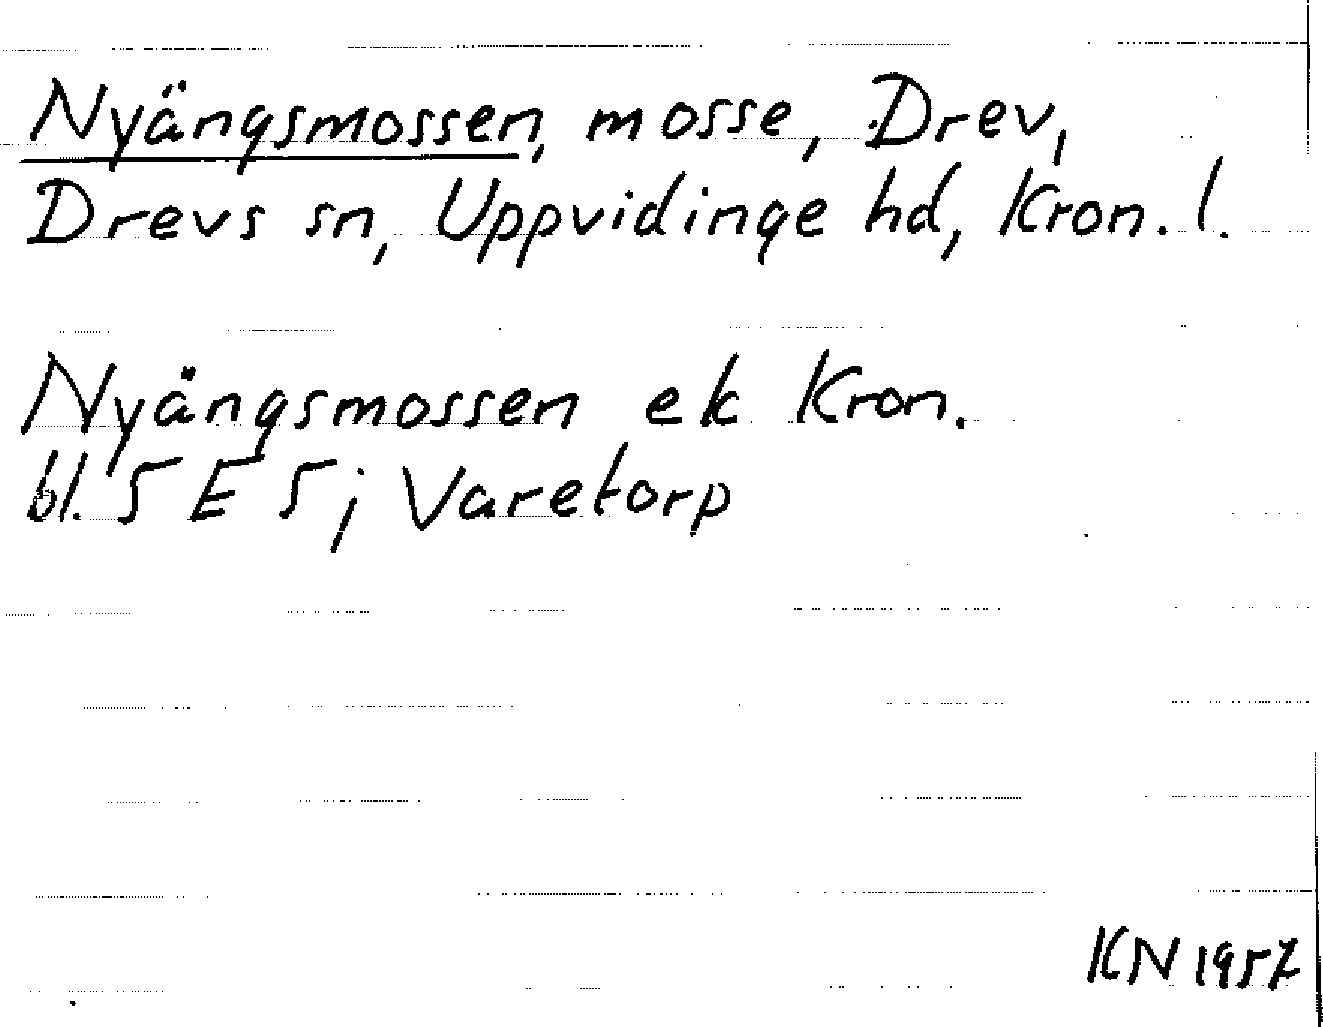 Nyängsmossen, mosse, Drev,
Drevs sn, Uppvidinge hd, Kron. l.
Nyängsmossen ek Kron.
bl. 5 E 5; Varetorp
KN 1957